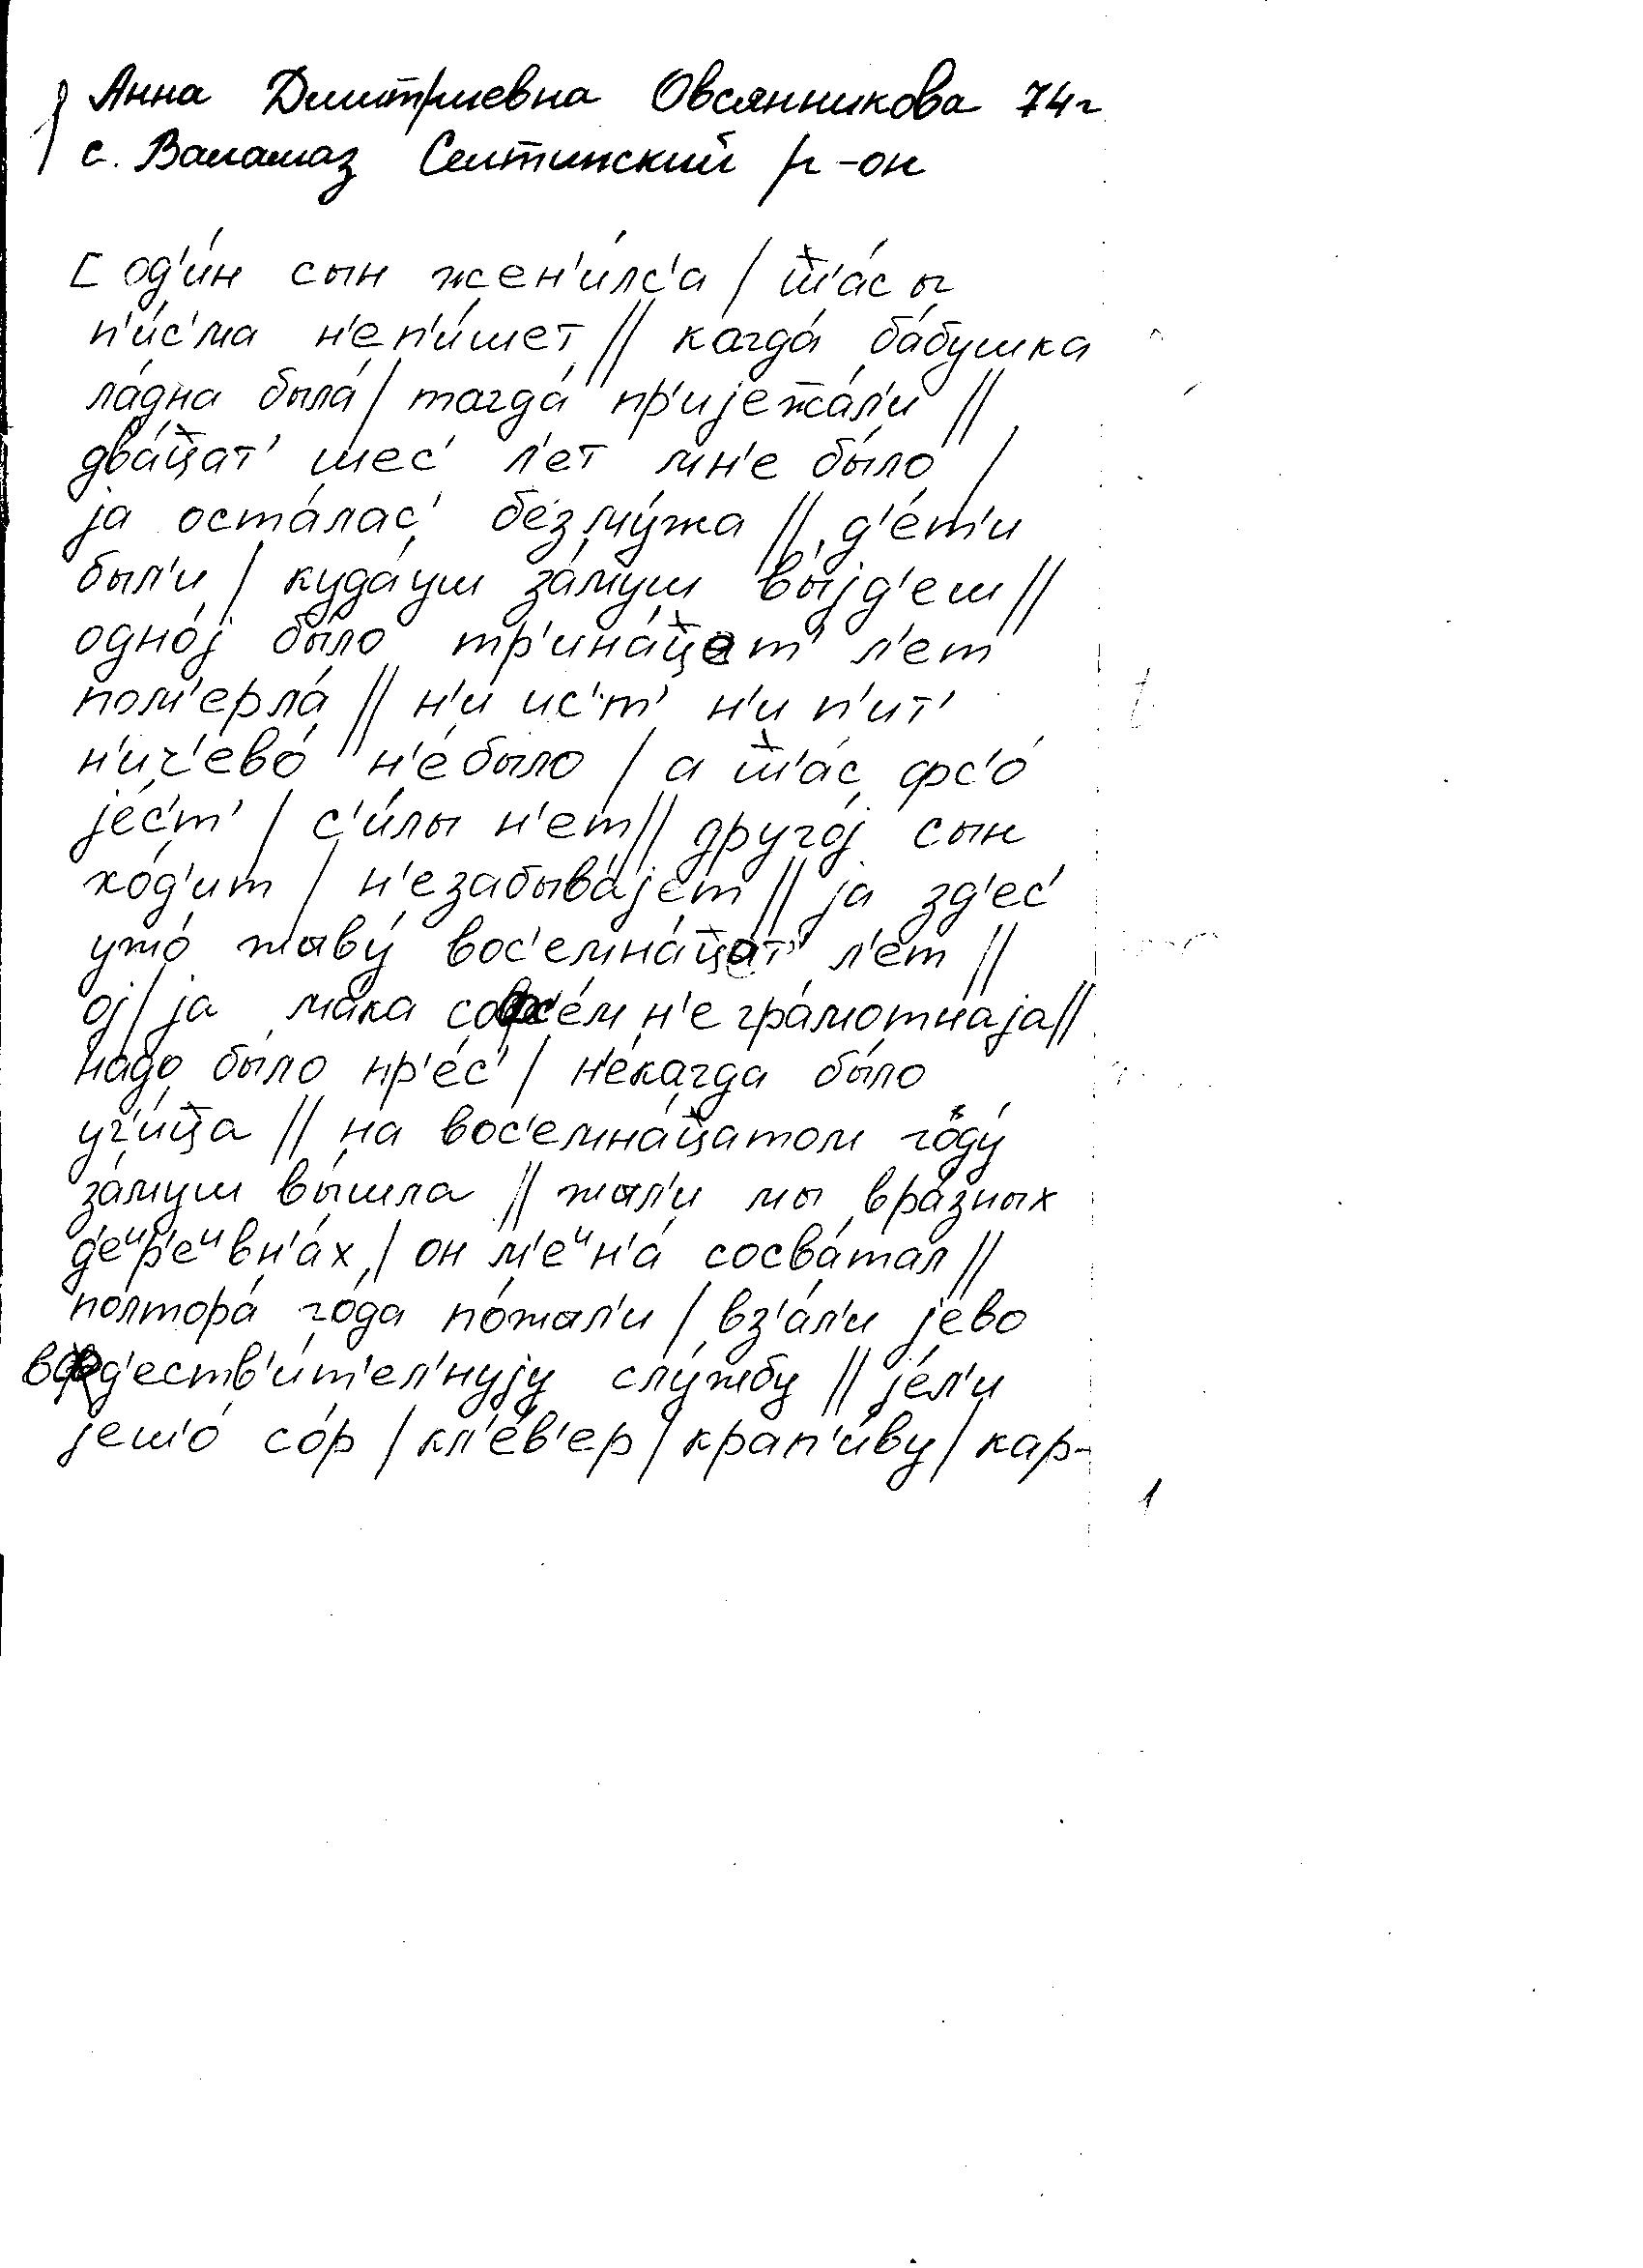 Анна Дмитриевна Овсянникова 74г
с. Валамаз Селтинский р-он
[ од'и́н сын жен'и́лс'а / т̄'а́с ы
п'и́с'ма н'еп'и́шет // кагда́ ба́бушка
ла́дна была́ / тагда́ пр'ијежа́л'и //
два́ц̄ат' шес' л'ет мн'е бы́ло /
ја оста́лас' безму́жа // д'е́т'и
был'и / куда́уш за́муш вы́јд'еш //
одно́ј бы́ло тр'ина́ц̄ат' л'ет
пом'ерла́ // н'и ис'т' н'и п'ит'
н'ич'ево́ н'е́было / а т̄'ас фс'о́
је́с'т' / с'и́лы н'ет // друго́ј сын
хо́д'ит / н'езабыва́јет // ја зд'ес'
ужо́ жыву́ вос'емна́ц̄ат' л'ет //
ој / ја мака совс'е́м н'егра́мотнаја //
на́до бы́ло пр'ес' / н'е́кагда бы́ло
уч'и́ц̄а // на вос'емна́ц̄атом году́
за́муш вы́шла // жыл'и мы вра́зных
д'еᵘр'еᵘвн'а́х / он м'еᵘн'а́ сосва́тал //
полтора́ го́да по́жыл'и / вз'а́л'и јево
вд'еств'и́т'ел'нују слу́жбу // је́л'и
јеш'о́ сор / кл'е́в'ер / крап'и́ву / кар-